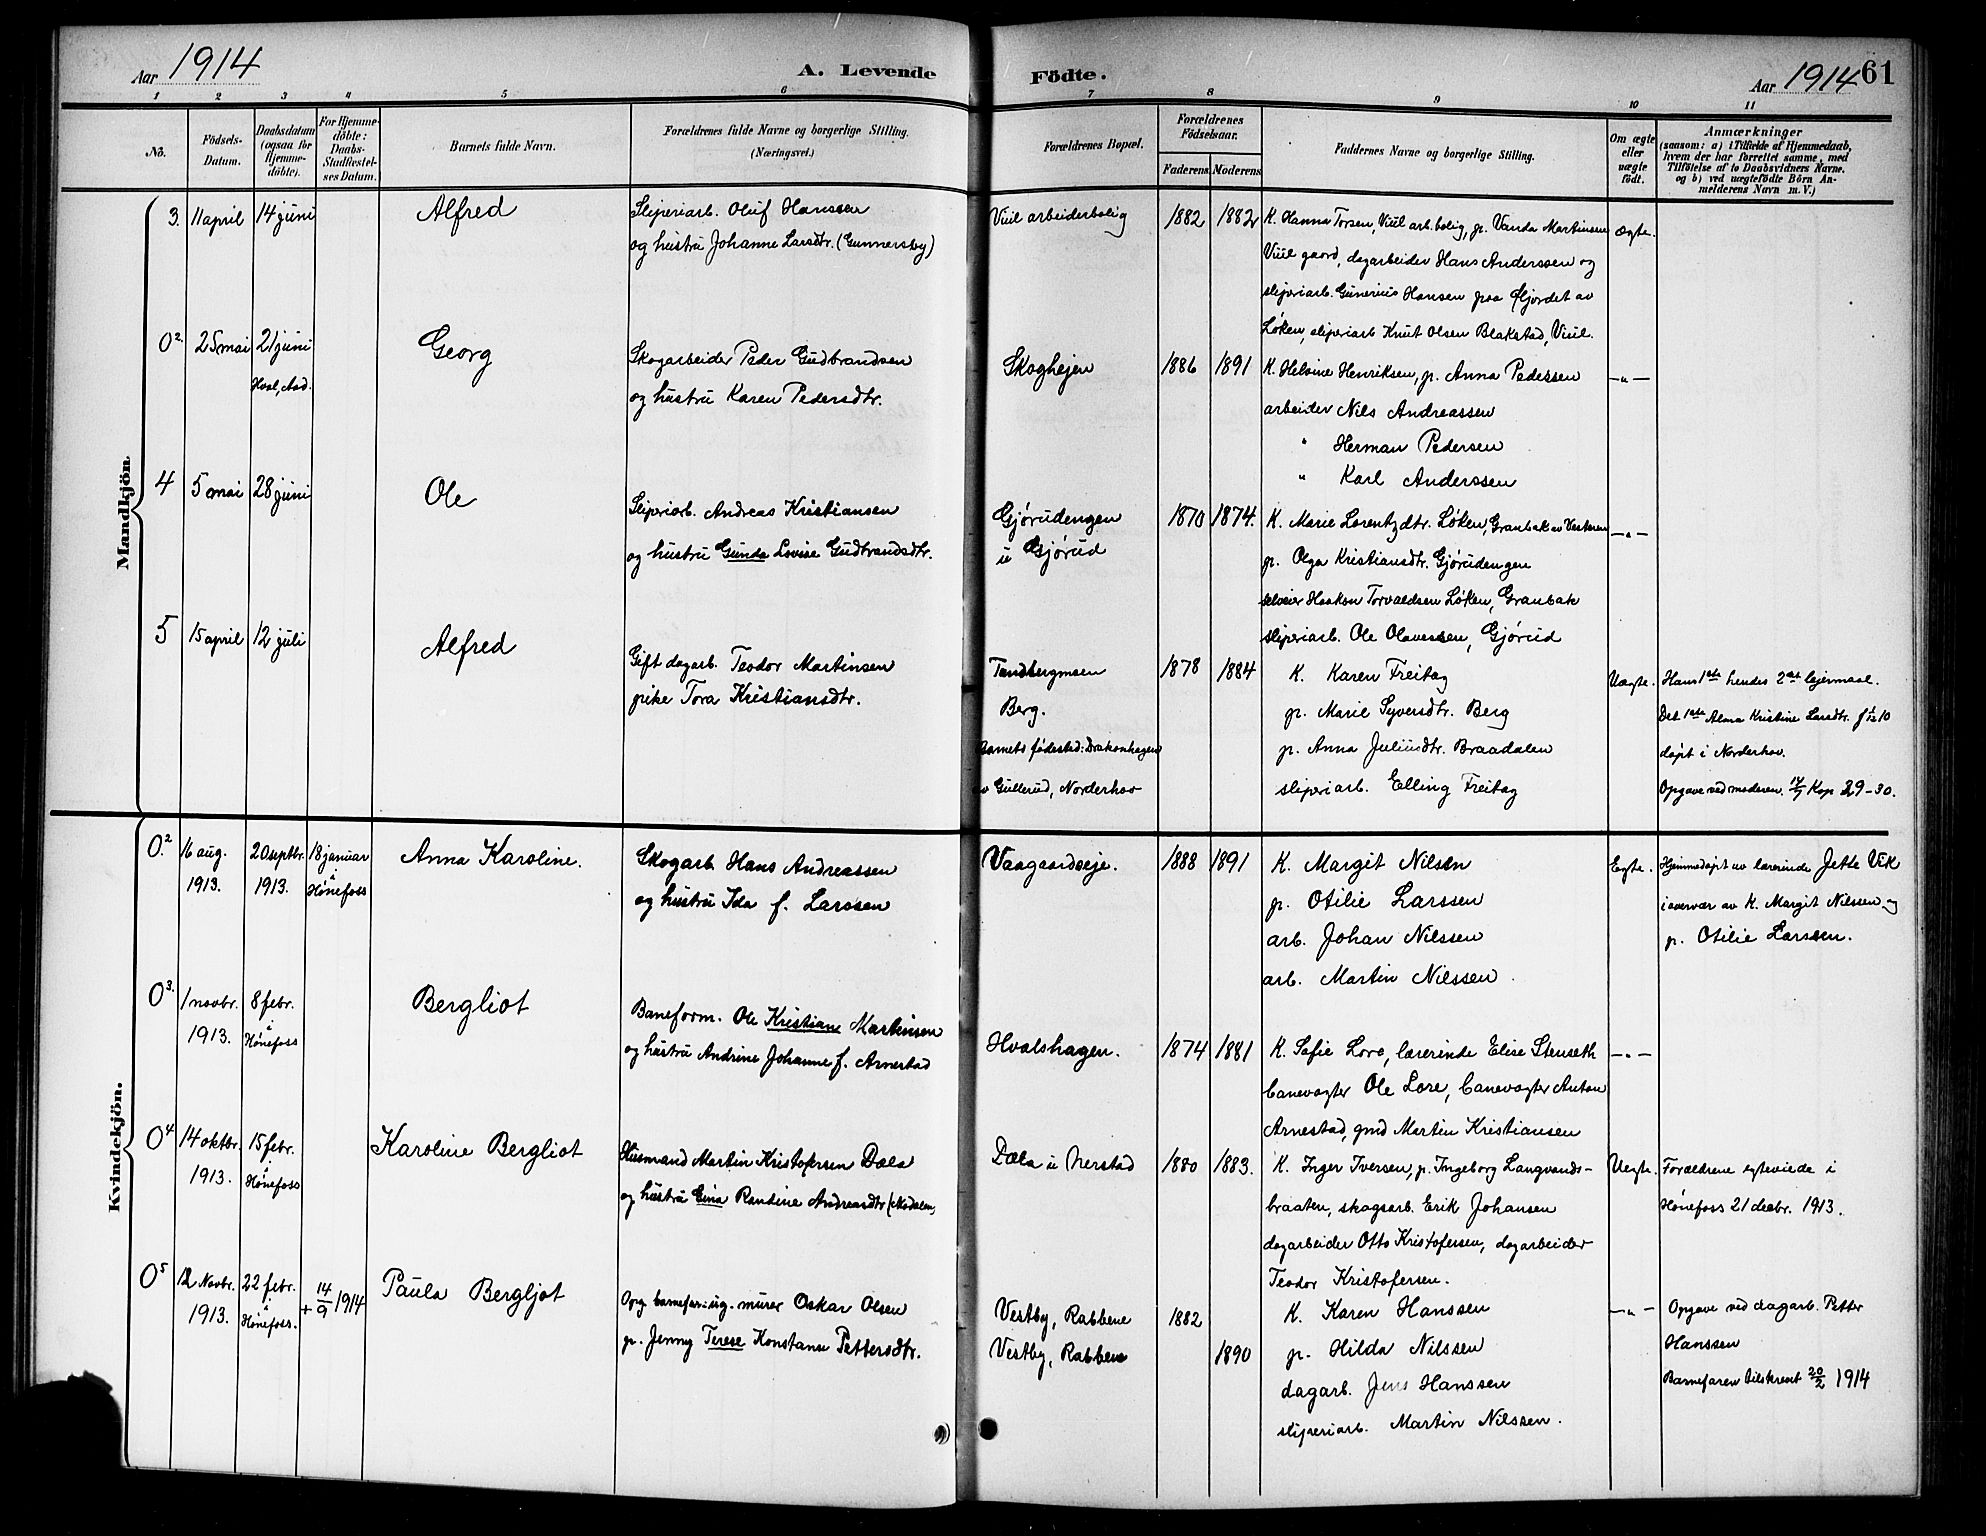 Aar 1914
A. Levende
Födte.
Aar 1914
61
1 2 3 4 5 6 7 8 9 10 11
No.
Födsels-
Datum.
Daabsdatum
(ogsaa for
Hjemme-
döbte).
For Hjemme-
döbte:
Daabs-
Stadfæstel-
ses Datum.
Barnets fulde Navn.
Forældrenes fulde Navne og borgerlige Stilling.
(Næringsvei.)
Forældrenes Bopæl.
Forældrenes
Födselsaar.
Faderens
Moderens
Faddernes Navne og borgerlige Stilling.
Om ægte
eller
uægte
födt.
Anmærkninger
(saasom: a) i Tilfælde af Hjemmedaab,
hvem der har forrettet samme, med
Tilföielse af to Daabsvidners Navne.
og b) ved uægtefödte Börn An-
melderens Navn m. V.)
Mandkjön
3. 11 april 14 juni Alfred
Sliperiarb. Oluf Hanssen
og hustru Johanne Larsdtr. (Gunnersby)
Viul arbeiderbolig 1882 1882
K. Hanna Torsen, Viul arb.bolig, p. Vanda Martinsen
Viul gaard, dagarbeider Hans Anderssen og
sliperiarb. Gunerius Hansen paa Gjordet av
Løken, sliperiarb Knut Olsen Blakstad, Viul.
ægte.
0² 25 mai 21 juni
Hval, Aad.
Georg
Skogarbeider Peder Gudbrandsen
og hustru Karen Pedersdtr.
Skoghejen 1886 1891
K. Helvine Henriksen, p. Anna Pedersen
arbeider Nils Andreassen
" Herman Pedersen
" Karl Anderssen
—"—
4 5 mai 28 juni Ole
Sliperiarb. Andreas Kristiansen
og hustru Gunda Lovise Gudbrandsdtr.
Gjørudengen
u Gjørud
1870 1874.
K. Marie Lorentzdtr. Løken, Granbak av Vesteren
p. Olga Kristiansdtr. Gjørudengen
selveier Haakon Torvaldsen Løken, Granbak
sliperiarb. Ole Olavessen, Gjørud
—"—
5 15 april 12 juli Alfred
Gift dagarb. Teodor Martinsen
pike Tora Kristiansdtr.
Tandbergmoen
Berg.
Barnets fødested: Drakonhagen
av Gullerud, Norderhov
1878 1884
K. Karen Freitag
p. Marie Syversdtr. Berg
p. Anna Juliusdtr. Braadalen
sliperiarb. Elling Freitag
Uægte.
Hans 1ste hendes 2det lejermaal.
Det 1ste Alma Kristine Larsdtr. f 1/12 10
døpt i Norderhov.
Opgave ved moderen. 12/7 Kop 29-30.
Kvindekjön.
0.² 16 aug.
1913.
20 septbr.
1913.
18 januar
i
Hønefoss
Anna Karoline.
Skogarb Hans Andreassen
og hustru Ida f. Larssen
Vaagaardseje. 1888 1891
K. Margit Nilsen
p. Otilie Larssen
arb. Johan Nilssen
arb. Martin Nilssen.
Egte.
Hjemmedøpt av lærerinde Jette Vik
i overvær av K. Margit Nilssen og
p. Otilie Larssen.
0³. 1 novbr.
1913.
8 febr.
i
Hønefoss
Bergliot
Baneform. Ole Kristiane Martinsen
og hustru Andrine Johanne f. Arnestad
Hvalshagen. 1874 1881
K. Sofie Lore, lærerinde Elise Stenseth
banevogter Ole Lore, banevogter Anton
Arnestad, gmd Martin Kristiansen
—"—
0⁴ 14 oktbr.
1913.
15 febr.
i
Hønefoss
Karoline Bergliot
Husmand Martin Kristofersen Dæla
og hustru Gina Randine Andreasdtr (Modalen)
Dæla u Nerstad 1880 1883.
K. Inger Iversen, p. Ingeborg Langvands-
braaten, skogsarb. Erik Johansen
dagarbeider Otto Kristofersen, dagarbeider
Teodor Kristofersen.
Uegte.
Forældrene egteviede i
Hønefoss 21 decbr. 1913.
0⁵ 12 Novbr.
1913.
22 febr.
i
Hønefoss.
+ 14/9 1914
Paula Bergljot
Opg. barnefar: ug. murer Oskar Olsen
p. Jenny Terese Konstanse Pettersdtr.
Vestby, Rabbene 1882
Vestby, Rabbene 1890
K. Karen Hanssen
p. Hilda Nilssen
dagarb. Jens Hanssen
sliperiarb. Martin Nilssen.
—"—
Opgave ved dagarb. Petter
Hanssen
Barnefaren tilskrevet 20/2 1914